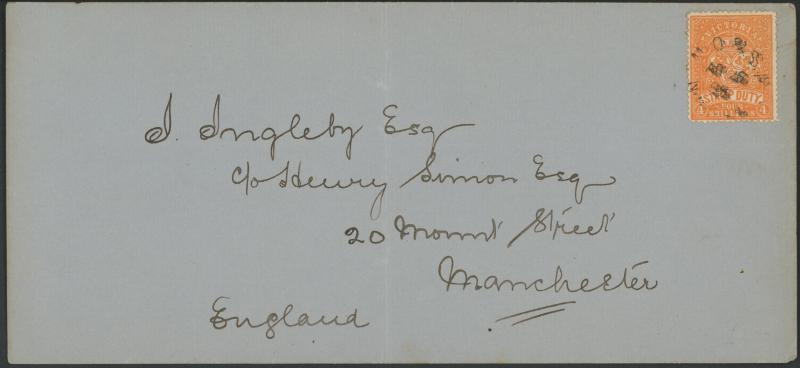 VICTORIA
STAMP DUTY
4 FOUR 4
SHILLINGS
J. Ingleby Esq
c/o Henry Simon Esq
20 Mount Street
Manchester
England